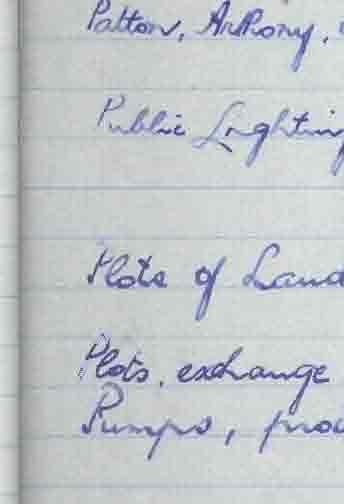 Patton, Anthony,
Public Lighting
Plots of Land
Plots, exchange
Pumps,